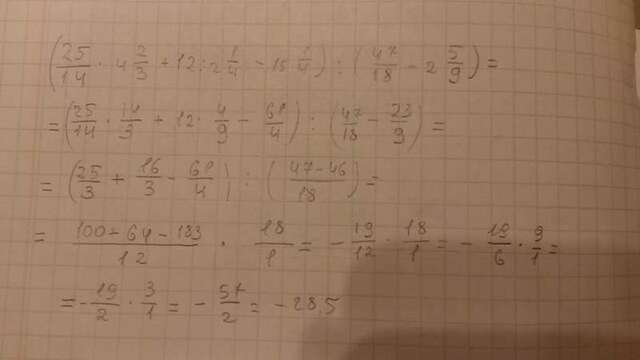 (25/14 · 4 2/3 + 12 : 2 1/4 - 15 1/4) : (47/18 - 2 5/9) =
= (25/14 · 14/3 + 12 · 4/9 - 61/4) : (47/18 - 23/9) =
= (25/3 + 16/3 - 61/4) : (47-46/18) =
= 100+64-183/12 · 18/1 = - 19/12 · 18/1 = - 19/6 · 9/1 =
= - 19/2 · 3/1 = - 57/2 = - 28,5